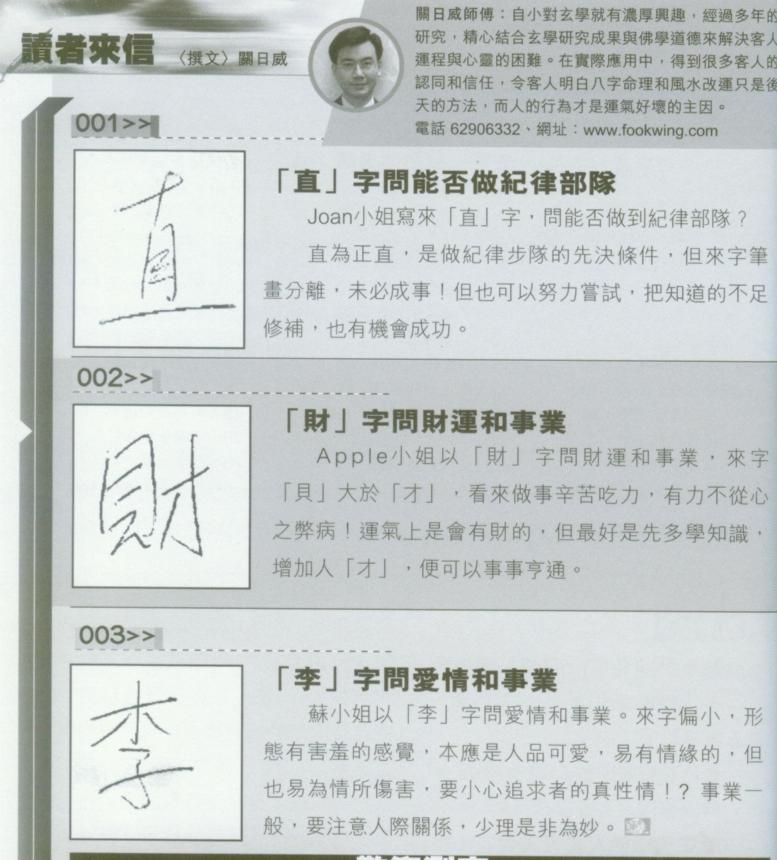 讀者來信 〈撰文〉關日威
關日威師傅：自小對玄學就有濃厚興趣，經過多年的
研究，精心結合玄學研究成果與佛學道德來解決客人
運程與心靈的困難。在實際應用中，得到很多客人的
認同和信任，令客人明白八字命理和風水改運只是後
天的方法，而人的行為才是運氣好壞的主因。
電話 62906332、網址：www.fookwing.com
001>>
直
「直」字問能否做紀律部隊
Joan小姐寫來「直」字，問能否做到紀律部隊？
直為正直，是做紀律步隊的先決條件，但來字筆
畫分離，未必成事！但也可以努力嘗試，把知道的不足
修補，也有機會成功。
002>>
財
「財」字問財運和事業
Apple小姐以「財」字問財運和事業，來字
「貝」大於「才」，看來做事辛苦吃力，有力不從心
之弊病！運氣上是會有財的，但最好是先多學知識，
增加人「才」，便可以事事亨通。
003>>
李
「李」字問愛情和事業
蘇小姐以「李」字問愛情和事業。來字偏小，形
態有害羞的感覺，本應是人品可愛，易有情緣的，但
也易為情所傷害，要小心追求者的真性情！？事業一
般，要注意人際關係，少理是非為妙。